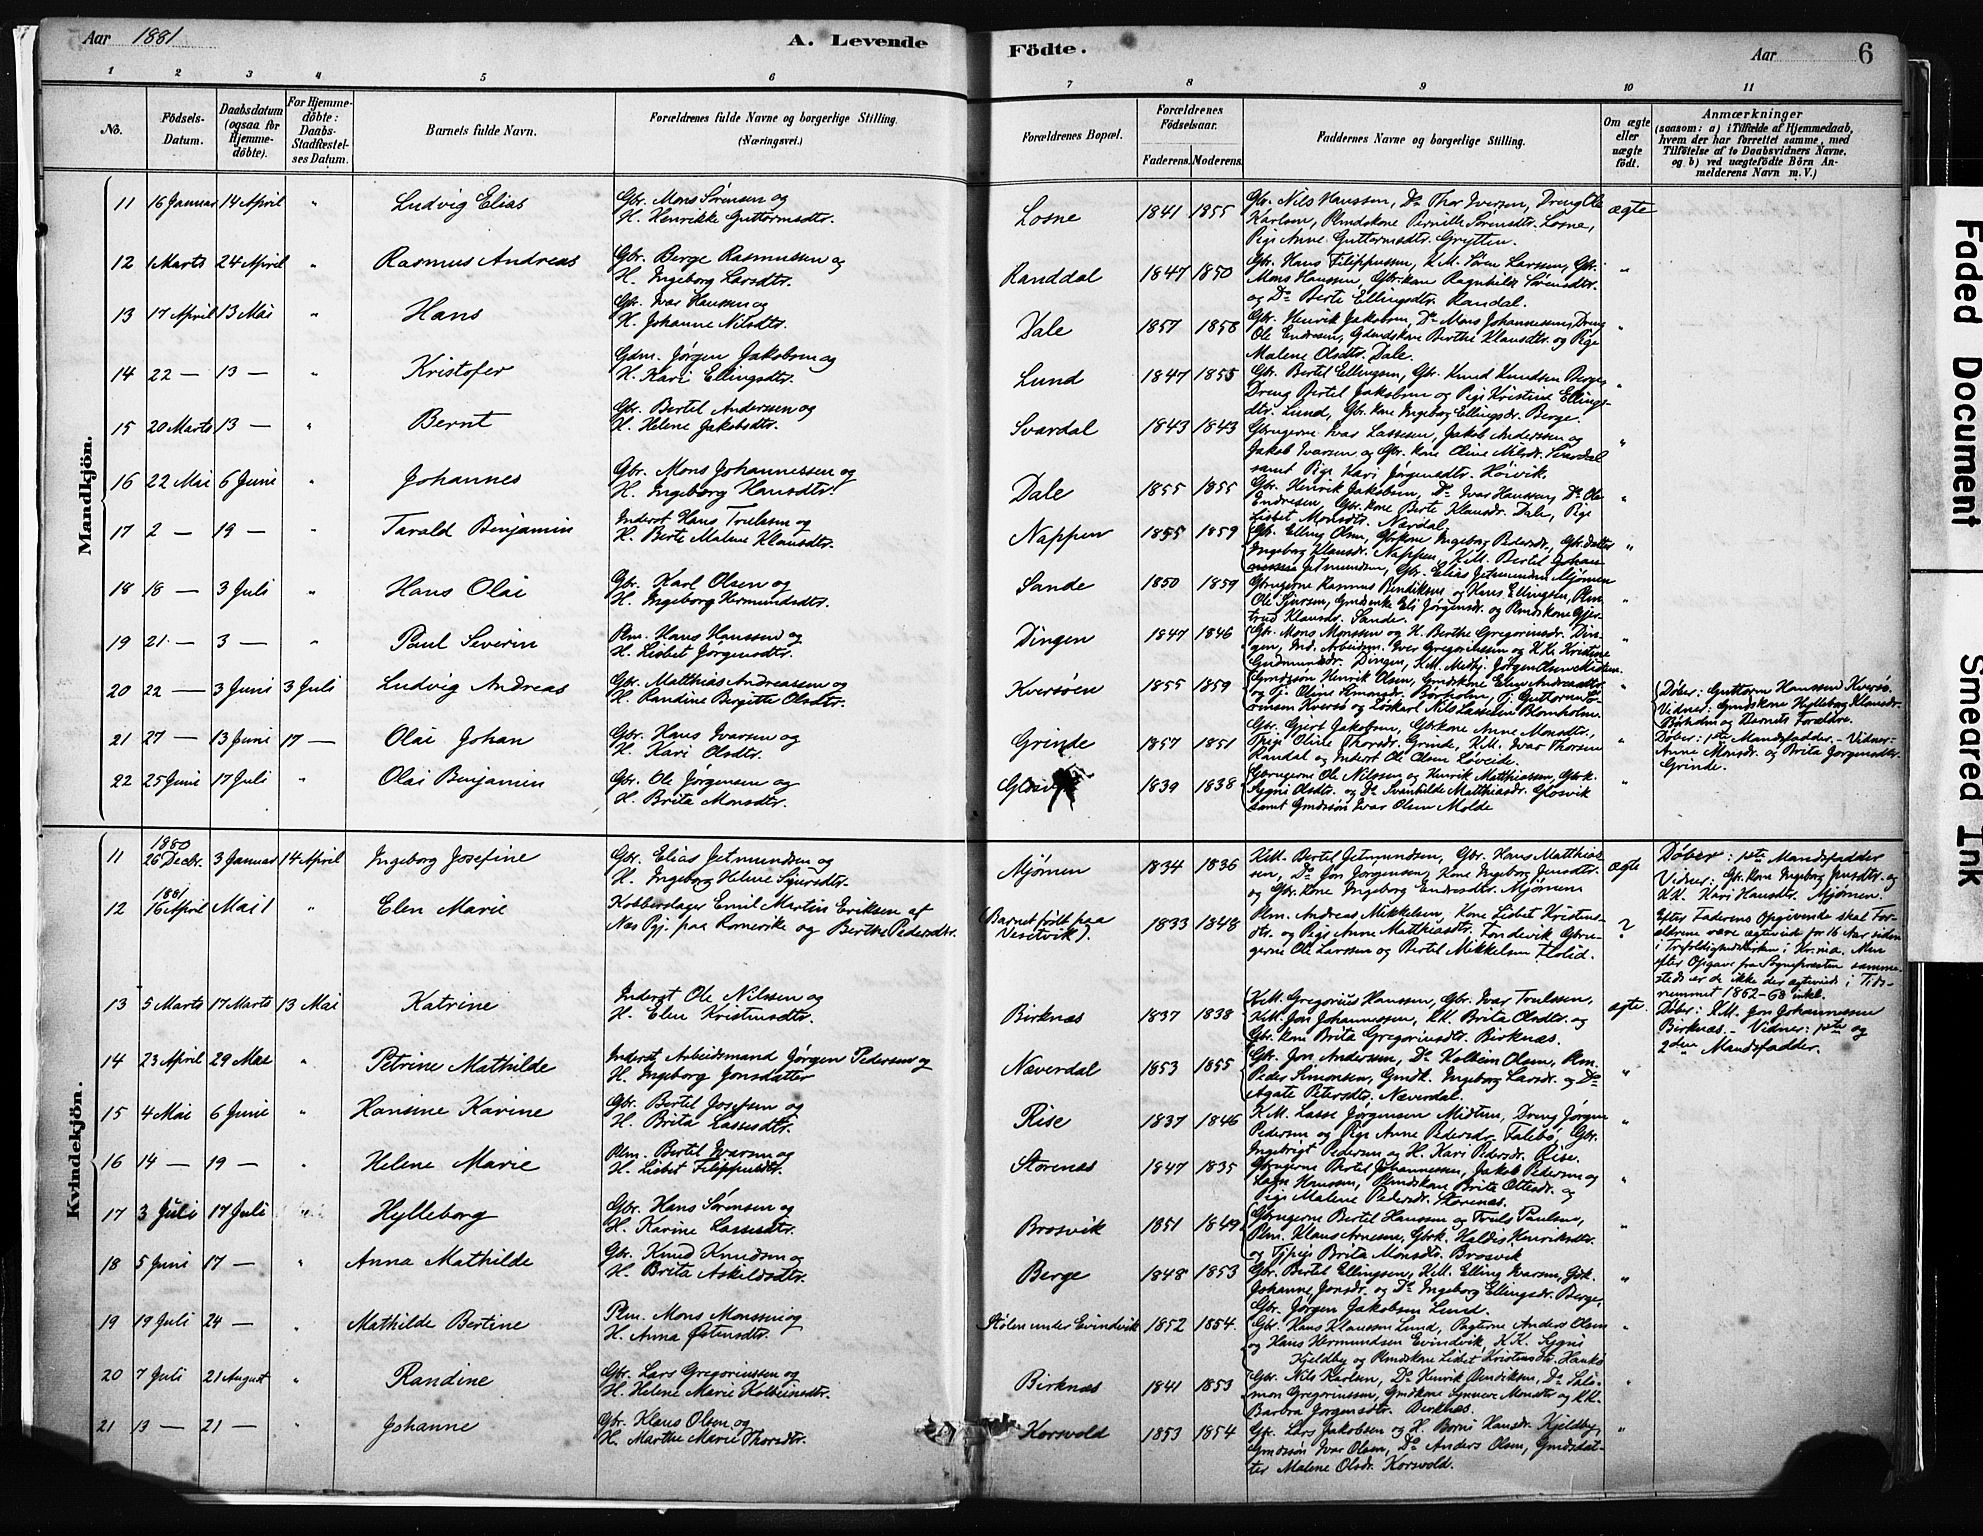 Aar 1881
A. Levende
Födte.
Aar
6
1 2 3 4 5 6 7 8 9 10 11
No.
Födsels-
Datum.
Daabsdatum
(ogsaa for
Hjemme-
döbte).
For Hjemme-
döbte:
Daabs-
Stadfæstel-
ses Datum.
Barnets fulde Navn.
Forældrenes fulde Navne og borgerlige Stilling.
(Næringsvei.)
Forældrenes Bopæl.
Forældrenes
Födselsaar.
Faderens. Moderens.
Faddernes Navne og borgerlige Stilling.
Om ægte
eller
uægte
födt.
Anmærkninger
(saasom: a) i Tilfælde af Hjemmedaab,
hvem der har forrettet samme, med
Tilföielse af to Daabsvidners Navne,
og b) ved uægtefödte Börn An-
melderens Navn m. V.)
Mandkjön.
11 16 Januar 14 April " Ludvig Elias
Gbr. Mons Sørensen og
H. Henrikke Guttormsdtr.
Losne 1841 1855
Gbr. Nils Hanssen, Do Thor Iversen, Dreng Ole
Karlsen, Plmdskone Pernille Sørensdtr. Losne,
Pige Anne Guttormsdtr. Grytten.
ægte
12 1 Marts 24 April " Rasmus Andreas
Gbr. Berge Rasmussen og
H. Ingeborg Larsdtr.
Randdal 1847 1850
Gbr. Hans Filippussen, K.M. Søren Larssen, Gbr.
Mons Hanssen, Gbr.kone Ragnhilde Sørensdtr.
og Do Berte Ellingsdtr. Randal.
"
13 17 April 13 Mai " Hans
Gbr. Ivar Hanssen og
H. Johanne Nilsdtr.
Dale 1857 1858
Gbr. Henrik Jakobsen, Do Mons Johannessen, Dreng
Ole Endresen, Gdmdskone Berthe Klausdtr. og Pige
Malene Olsdtr. Dale.
"
14 22 — 13 — " Kristofer
Gdm. Jørgen Jakobsen og
H. Kari Ellingsdtr.
Lund 1847 1855
Gbr. Bertel Ellingsen, Gbr. Knud Knudsen Berge,
Dreng Bertel Jakobsen og Pige Kristine Ellings-
dtr. Lund, Gbr. kone Ingeborg Ellingsdr. Berge.
"
15 20 Marts 13 — " Bernt
Gbr. Bertel Anderssen og
H. Helene Jakobsdtr.
Svardal 1843 1843
Gbrugerne Ivar Lassesen, Jakob Anderssen og
Jakob Ivarsen og Gbr. kone Oline Nilsdr. Svardal
samt Pige Kari Jørgensdtr. Høivik.
"
16 22 Mai 6 Juni " Johannes
Gbr. Mons Johannessen og
H. Ingeborg Hansdtr.
Dale 1855 1855
Gbr. Henrik Jakobsen, Do Ivar Hanssen, Do Ole
Endresen, Gbr.kone Berte Klausdr. Dale, Pige
Lisbet Monsdtr. Nærdal.
"
17 2 — 19 — " Tarald Benjamin
Inderst Hans Trulssen og
H. Berte Malene Klausdtr.
Nappen 1855 1859
Gbr. Elling Olsen, Gbrkone Ingeborg Pedersdr., Gbr.datter
Ingeborg Klausdr. Nappen, K.M. Bertel Johan-
nessen Jetmundsen, Gbr. Elias Jetmundsen Mjømen
"
18 18 — 3 Juli " Hans Olai
Gbr. Karl Olsen og
H. Ingeborg Hermundsdtr.
Sande 1850 1859
Gbrugerne Rasmus Bendiksen og Hans Ellingsen, Plm.
Ole Sjursen, Gmdenke Eli Jørgensdr. og Plmdskone Gjer-
trud Klausdr. Sande.
"
19 21 — 3 — " Paul Severin
Plm. Hans Hanssen og
H. Lisbet Jørgensdtr.
Dingen 1847 1846
Gbr. Mons Monssen og H. Berthe Gregoriusdr. Din-
gen, Ind. Arbeidsm. Iver Gregoriussen og K.K. Kristine
Gudmundsdr. Dingen, K.M. Medhj. Jørgen Olsen Midtun.
"
20 22 — 3 Juni 3 Juli Ludvig Andreas
Gbr. Matthias Andreassen og
H. Randine Birgitte Olsdtr.
Kversøen 1855 1859
Gmdssøn Henrik Olsen, Gmdskone Elen Andreasdtr.
og Tj. Oline Simonsdr. Børholm, Tj. Guttorm Tø-
rresen Kversø og Løskarl Nils Lassesen Blomholm.
"
Døber: Guttorm Hanssen Kversø.
Vidner: Gmdskone Hylleborg Klausdr.
Børholm og Barnets Forældre.
21 27 — 13 Juni 17 — Olai Johan
Gbr. Hans Ivarsen og
H. Kari Olsdtr.
Grinde 1857 1851
Gbr. Gjert Jakobsen, Gbrkone Anne Monsdtr.,
Pige Oline Thorsdr. Grinde, K.M. Ivar Thorsen
Randal og Inderst Ole Olsen Løveide.
"
Døber: 1ste Mandsfadder. – Vidner:
Anne Monsdr. og Brita Jørgensdtr.
Grinde.
22 25 Juni 17 Juli Olai Benjamin
Gbr. Ole Jørgensen og
H. Brita Monsdtr.
Glosvik 1839 1838
Gbrugerne Ole Nilssen og Henrik Matthiassen, Gbrk.
Sygni Olsdtr. og Do Svanhilde Matthiasdr. Glosvik
samt Gmdssøn Ivar Olsen Molde
"
Kvindekjön.
11 1880 26 Decbr. 3 Januar 14 April Ingeborg Josefine
Gbr. Elias Jetmundsen og
H. Ingeborg Helene Sjursdtr.
Mjømen 1834 1836
K.M. Bertel Jetmundsen, Gbr. Hans Matthias-
sen, Do Jon Jørgensen, Kone Ingeborg Jensdtr.
og Gbr. kone Ingeborg Endresdtr. Mjømen
ægte
Døber: 1ste Mandsfadder
Vidner: Gbr. kone Ingeborg Jensdtr. og
K.K. Kari Hansdtr. Mjømen.
12 1881 16 April Mai 1 " Elen Marie
Kobberslager Emil Martin Eriksen af
Næs Pgj. paa Romerike og Berthe Pedersdtr.
(Barnet født paa
Vesetvik). 1833 1848
Plm. Andreas Mikkelsen, Kone Lisbet Kristens-
dtr. og Pige Anne Matthiasdtr. Tøndevik, Gbru-
gerne Ole Larssen og Bertel Mikkelsen Flolid.
?
Efter Faderens Opgivende skal For-
ældrene være ægteviet for 16 Aar siden
i Trefoldighedskirken i Kr.nia. Men
efter Opgave fra Sognepræsten samme-
steds er de ikke der ægteviede i Tids-
rummet 1862–68 inkl.
13 5 Marts 17 Marts 13 Mai Katrine
Inderst Ole Nilssen og
H. Elen Kristensdtr.
Birknæs 1837 1838
K.M. Gregorius Hanssen, Gbr. Ivar Trulssen,
K.M. Jon Johannessen, K.K. Brita Olsdtr. og
Gbr. kone Brita Gregoriusdtr. Birknæs.
ægte.
Døber: K.M. Jon Johannessen
Birknæs. – Vidner: 1ste og
2den Mandsfadder.
14 23 April 29 Mai " Petrine Mathilde
Inderst Arbeidsmand Jørgen Pedersen og
H. Ingeborg Jonsdatter
Næverdal 1853 1855
Gbr. Jon Andersen, Do Kolbein Olsen, Plm.
Peder Simonsen, Gmdk. Ingeborg Larsdr. og Do
Agate Petersdtr. Næverdal.
"
15 4 Mai 6 Juni " Hansine Karine
Gbr. Bertel Josefsen og
H. Brita Lassesdtr.
Rise 1837 1846
K.M. Lasse Jørgensen Midtun, Dreng Jørgen
Pedersen og Pige Anne Pedersdr. Falebø, Gbr.
Ingebrigt Pedersen og H. Kari Pedersdr. Rise.
"
16 14 — 19 — " Helene Marie
Plm. Bertel Ivarsen og
H. Lisbet Filippusdtr.
Storenæs 1847 1835
Gbrugerne Bertel Johannessen, Jakob Pedersen og
Lars Hanssen, Plmdskone Brita Ottesdr. og
Pige Malene Pedersdr. Storenæs.
17 3 Juli 17 Juli " Hylleborg
Gbr. Hans Sørensen og
H. Karine Lassesdtr.
Brosvik 1851 1849
Gbrugerne Bertel Hanssen og Truls Paulsen,
Plm. Klaus Arnesen, Gbrk. Haldis Henriksdtr.
og Tjpige Brita Monsdtr. Brosvik
"
18 5 Juni 17 — " Anna Mathilde
Gbr. Knud Knudsen og
H. Brita Askildsdtr.
Berge 1848 1853
Gbr. Bertel Ellingsen, K.M. Elling Ivarsen, Gbk.
Johanne Jonsdr. og Do Ingeborg Ellingsdr. Berge,
Gbr. Jørgen Jakobsen Lund.
"
19 19 Juli 24 — " Mathilde Bertine
Plm. Mons Monssen og
H. Anna Østensdtr.
Stølen under Evindvik 1852 1854
Gbr. Hans Klaussen Lund, Pagterne Anders Olsen
og Hans Hermundsen Evindvik, K.K. Sygni
Kjeldby og Plmdskone Lisbet Kristensdtr. Hankø
"
20 7 Juli 21 August " Randine
Gbr. Lars Gregoriussen og
H. Helene Marie Kolbeinsdtr.
Birknæs 1841 1853
Gbr. Nils Karlsen, Do Henrik Bendiksen, Do Salo-
mon Gregoriussen, Gmdkone Synneve Monsdtr og K.K.
Barbra Jørgensdtr. Birknæs.
"
21 13 — 21 — Johanne
Gbr. Klaus Olsen og
H. Marthe Marie Thorsdtr.
Korsvold 1853 1854
Gbr. Lars Jakobsen og H. Borni Hansdr. Kjeldby,
Gmdssøn Ivar Olsen, Do Anders Olsen, Gmdsdat-
ter Malene Olsdr. Korsvold.
"
Faded Document
Smeared Ink